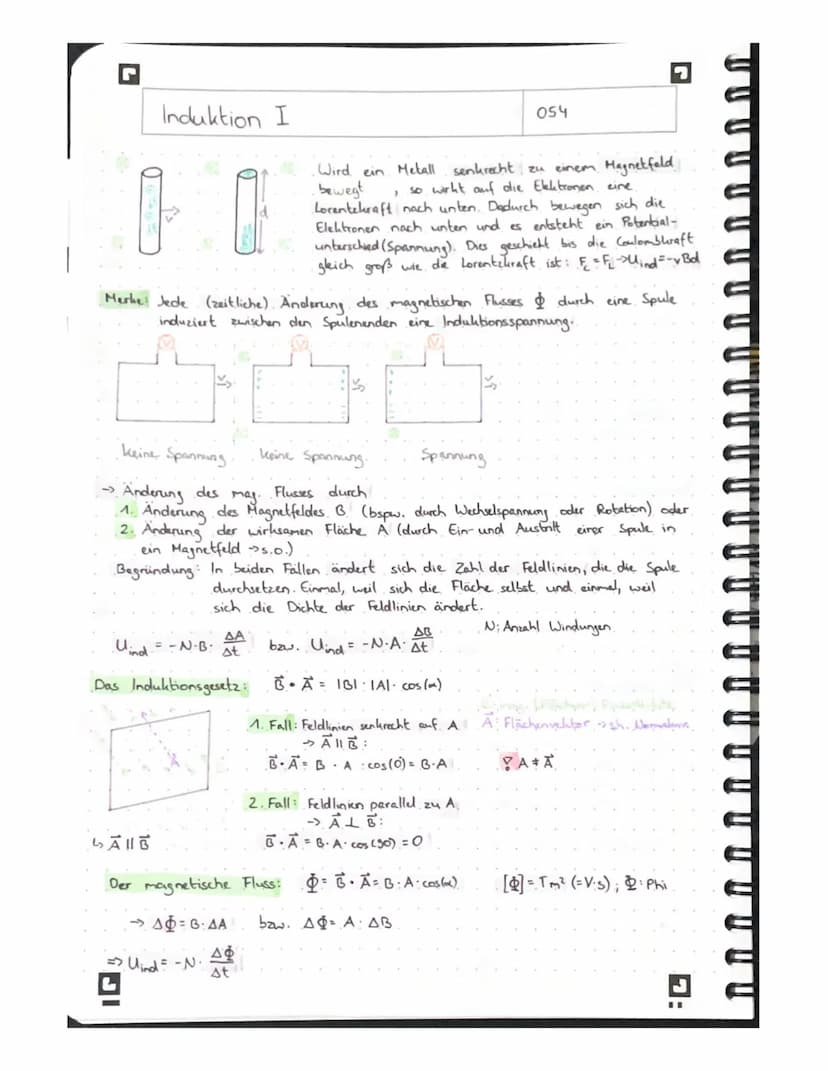 Induktion I
054
Wird ein Metall senkrecht zu einem Magnetfeld
bewegt , so wirkt auf die Elektronen eine
Lorentzkraft nach unten. Dadurch bewegen sich die
Elektronen nach unten und es entsteht ein Potential-
unterschied (Spannung). Dies geschieht bis die Coulombkraft
gleich groß wie die Lorentzkraft ist: F_C = F_L → U_ind = -vBd
v
d
Merke: Jede (zeitliche) Änderung des magnetischen Flusses Φ durch eine Spule
induziert zwischen den Spulenenden eine Induktionsspannung.
V V V
v v v
keine Spannung keine Spannung Spannung
→ Änderung des mag. Flusses durch
1. Änderung des Magnetfeldes B (bspw. durch Wechselspannung oder Rotation) oder
2. Änderung der wirksamen Fläche A (durch Ein- und Austritt einer Spule in
ein Magnetfeld → s.o.)
Begründung: In beiden Fällen ändert sich die Zahl der Feldlinien, die die Spule
durchsetzen. Einmal, weil sich die Fläche selbst und einmal, weil
sich die Dichte der Feldlinien ändert.
U_ind = -N·B· ΔA/Δt bzw. U_ind = -N·A· ΔB/Δt N: Anzahl Windungen
Das Induktionsgesetz: B⃗ • A⃗ = |B| · |A| · cos(α)
1. Fall: Feldlinien senkrecht auf A A⃗: Flächenvektor → sh.
→ A⃗ || B⃗ :
B⃗ • A⃗ = B · A · cos(0) = B·A ! A ≠ A⃗
A⃗
2. Fall: Feldlinien parallel zu A
→ A⃗ ⊥ B⃗ :
↳ A⃗ || B⃗ B⃗ • A⃗ = B·A·cos(90) = 0
Der magnetische Fluss: Φ = B⃗ • A⃗ = B·A·cos(α) [Φ] = Tm² (=V·s) ; Φ: Phi
→ ΔΦ = B·ΔA bzw. ΔΦ = A·ΔB
⇒ U_ind = -N· ΔΦ/Δt